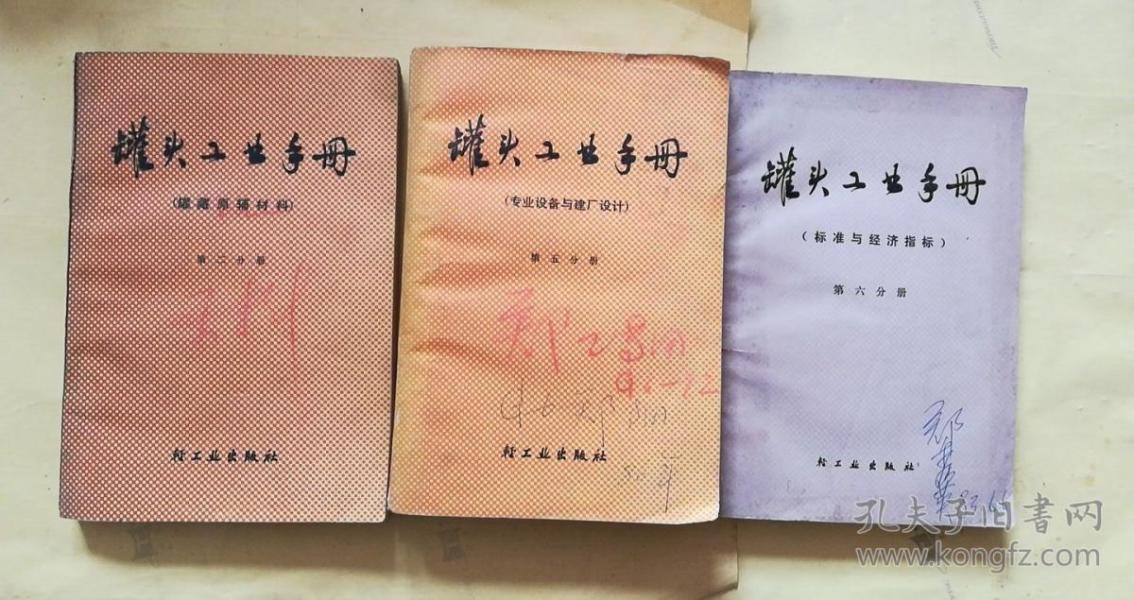 罐头工业手册
(罐藏原辅材料)
第一分册
轻工业出版社
罐头工业手册
(专业设备与建厂设计)
第五分册
轻工业出版社
罐头工业手册
(标准与经济指标)
第六分册
轻工业出版社
孔夫子旧書网
www.kongfz.com